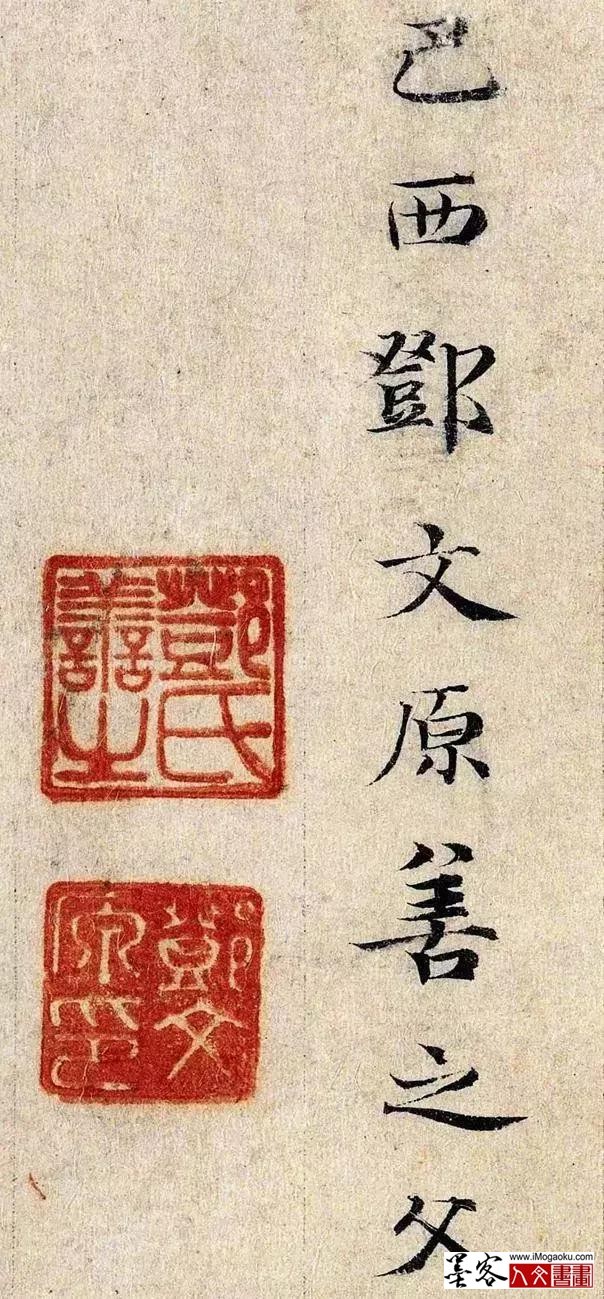 巴西鄧文原善之父
鄧氏
善之
鄧文
原印
墨客
www.iMogaoku.com
人文書畫